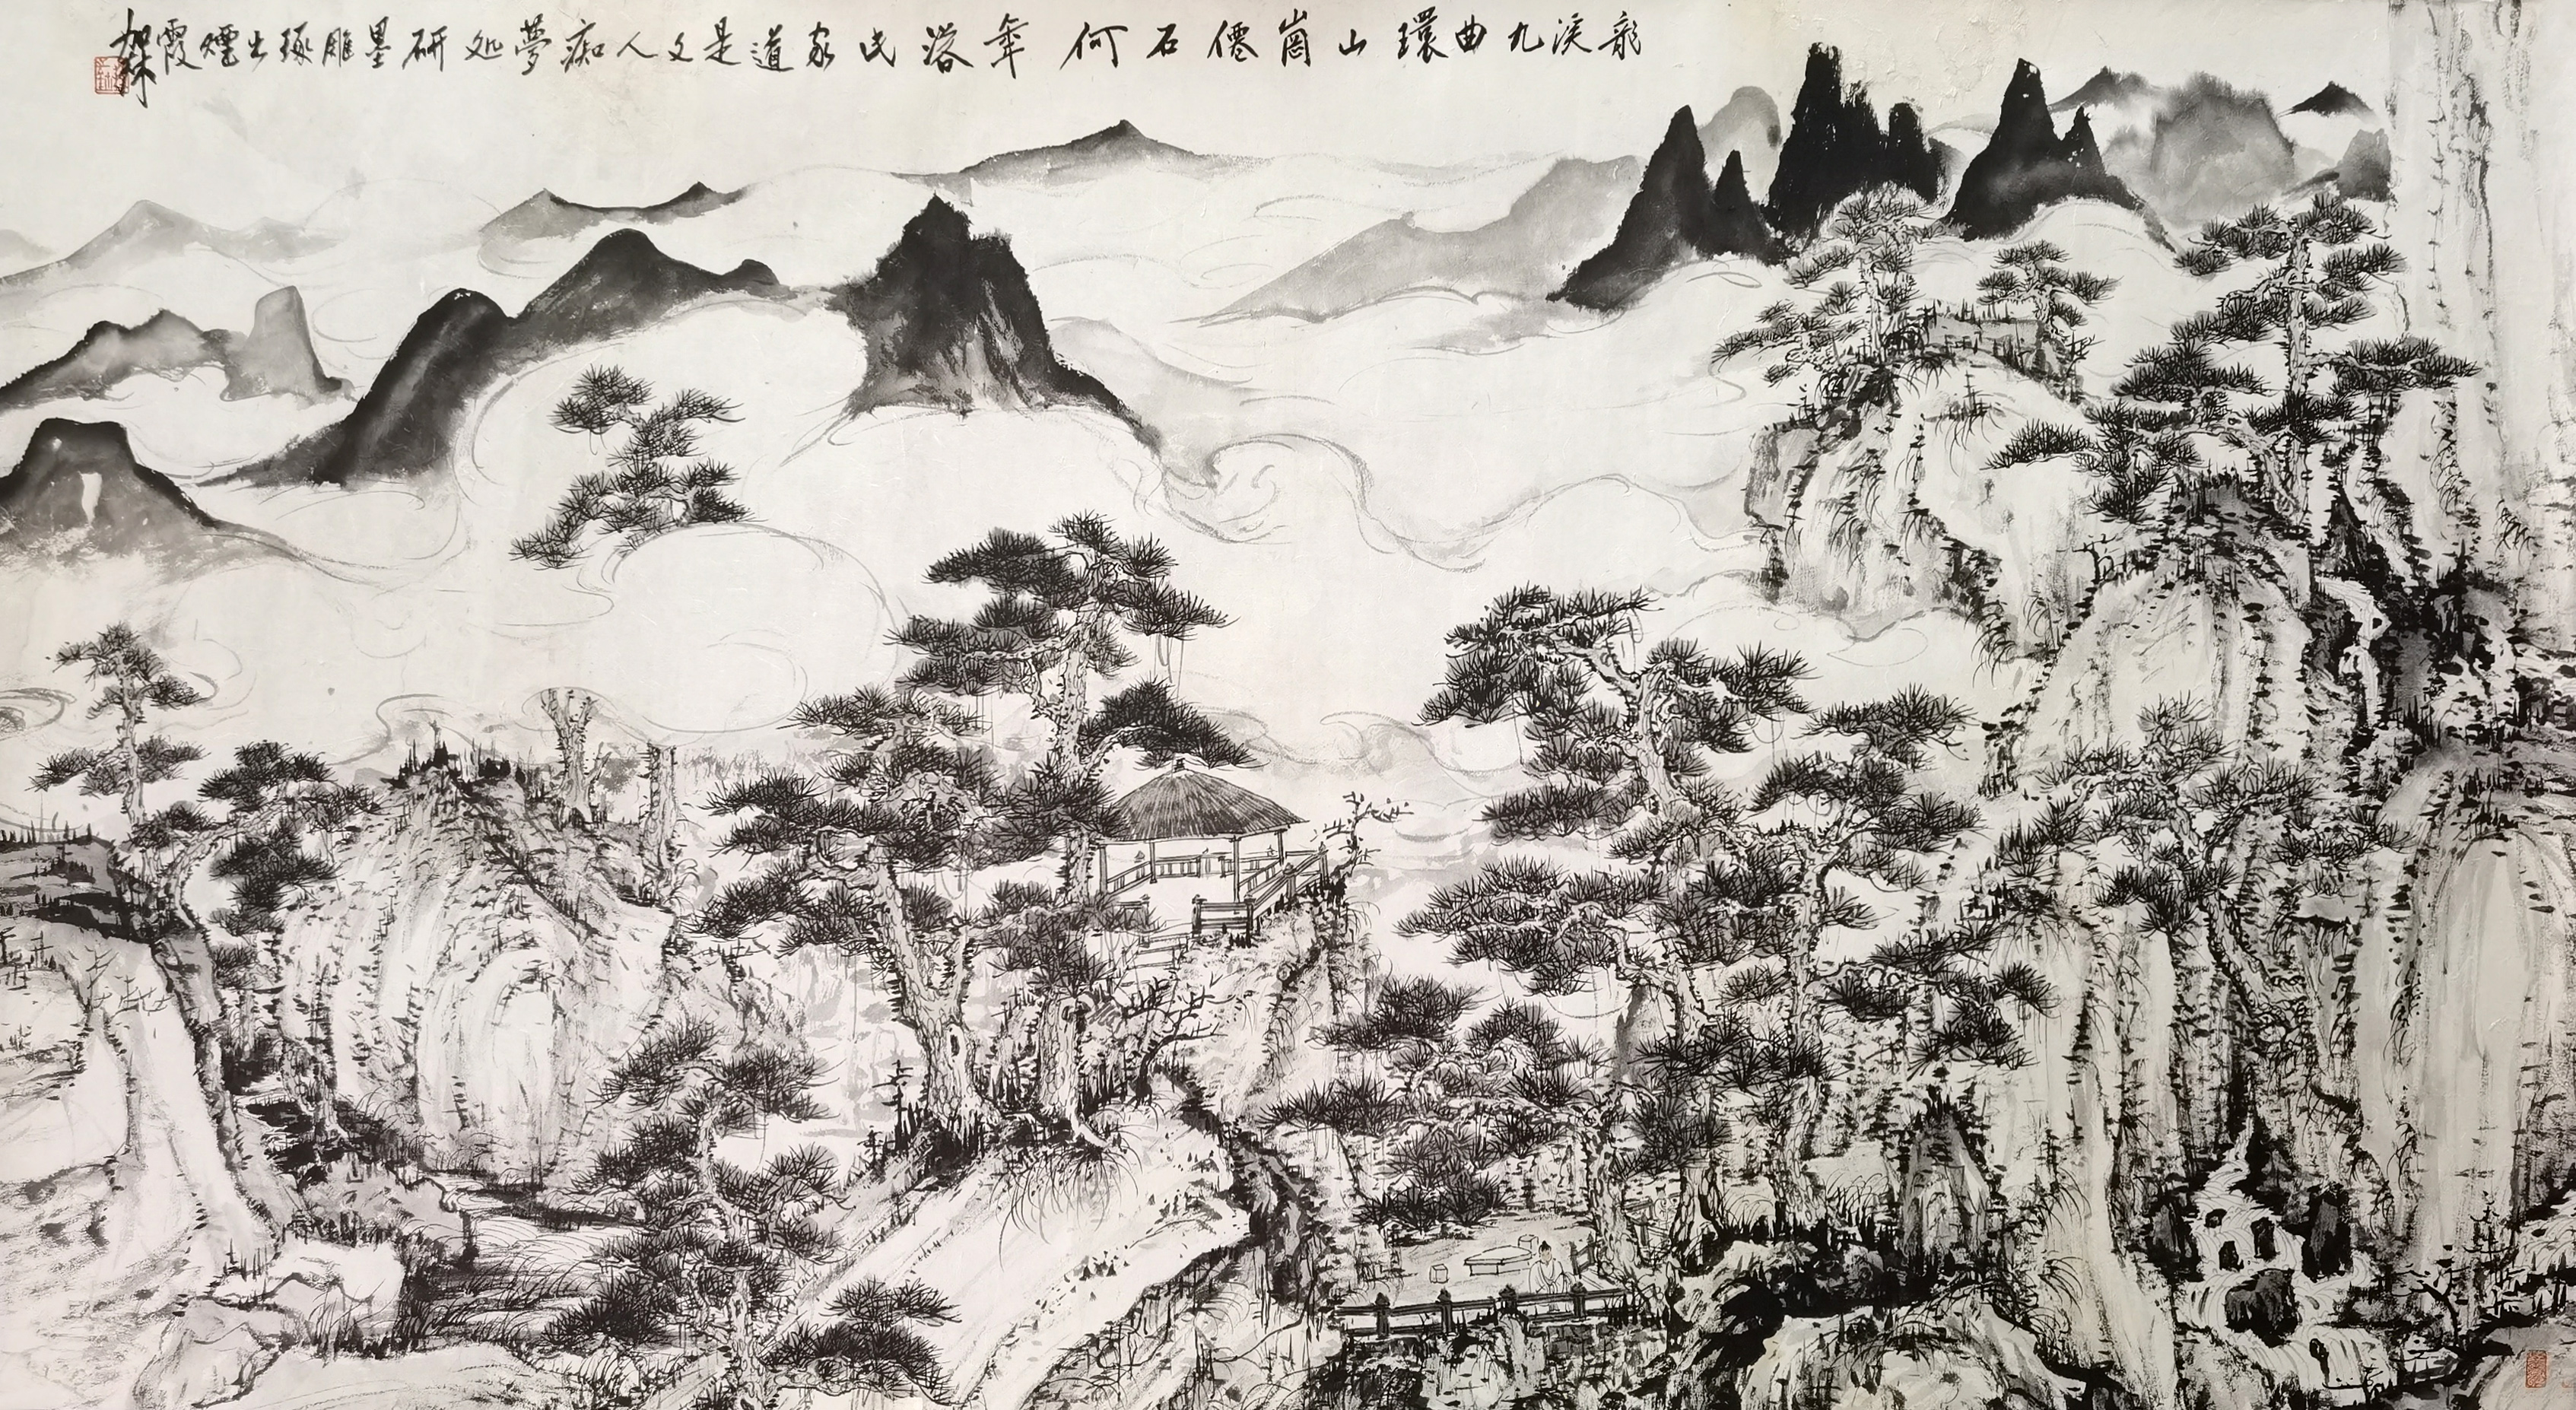 龍溪九曲環山崗僊石何年落此家道是文人痴夢处研墨雕琢出煙霞